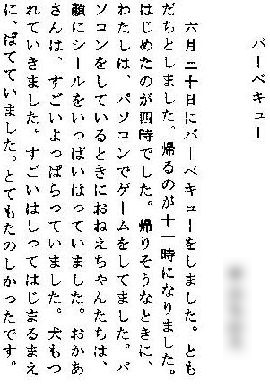 バーベキュー
六月二十日にバーベキューをしました。とも
だちとしました。帰るのが十一時になりました。
はじめたのが四時でした。帰りそうなときに、
わたしは、パソコンでゲームをしてました。パ
ソコンをしているときにおねえちゃんたちは、
顔にシールをいっぱいはっていました。おかあ
さんは、すごいよっぱらっていました。犬もつ
れていきました。すごいはしってはじまるまえ
に、ばてていました。とてもたのしかったです。